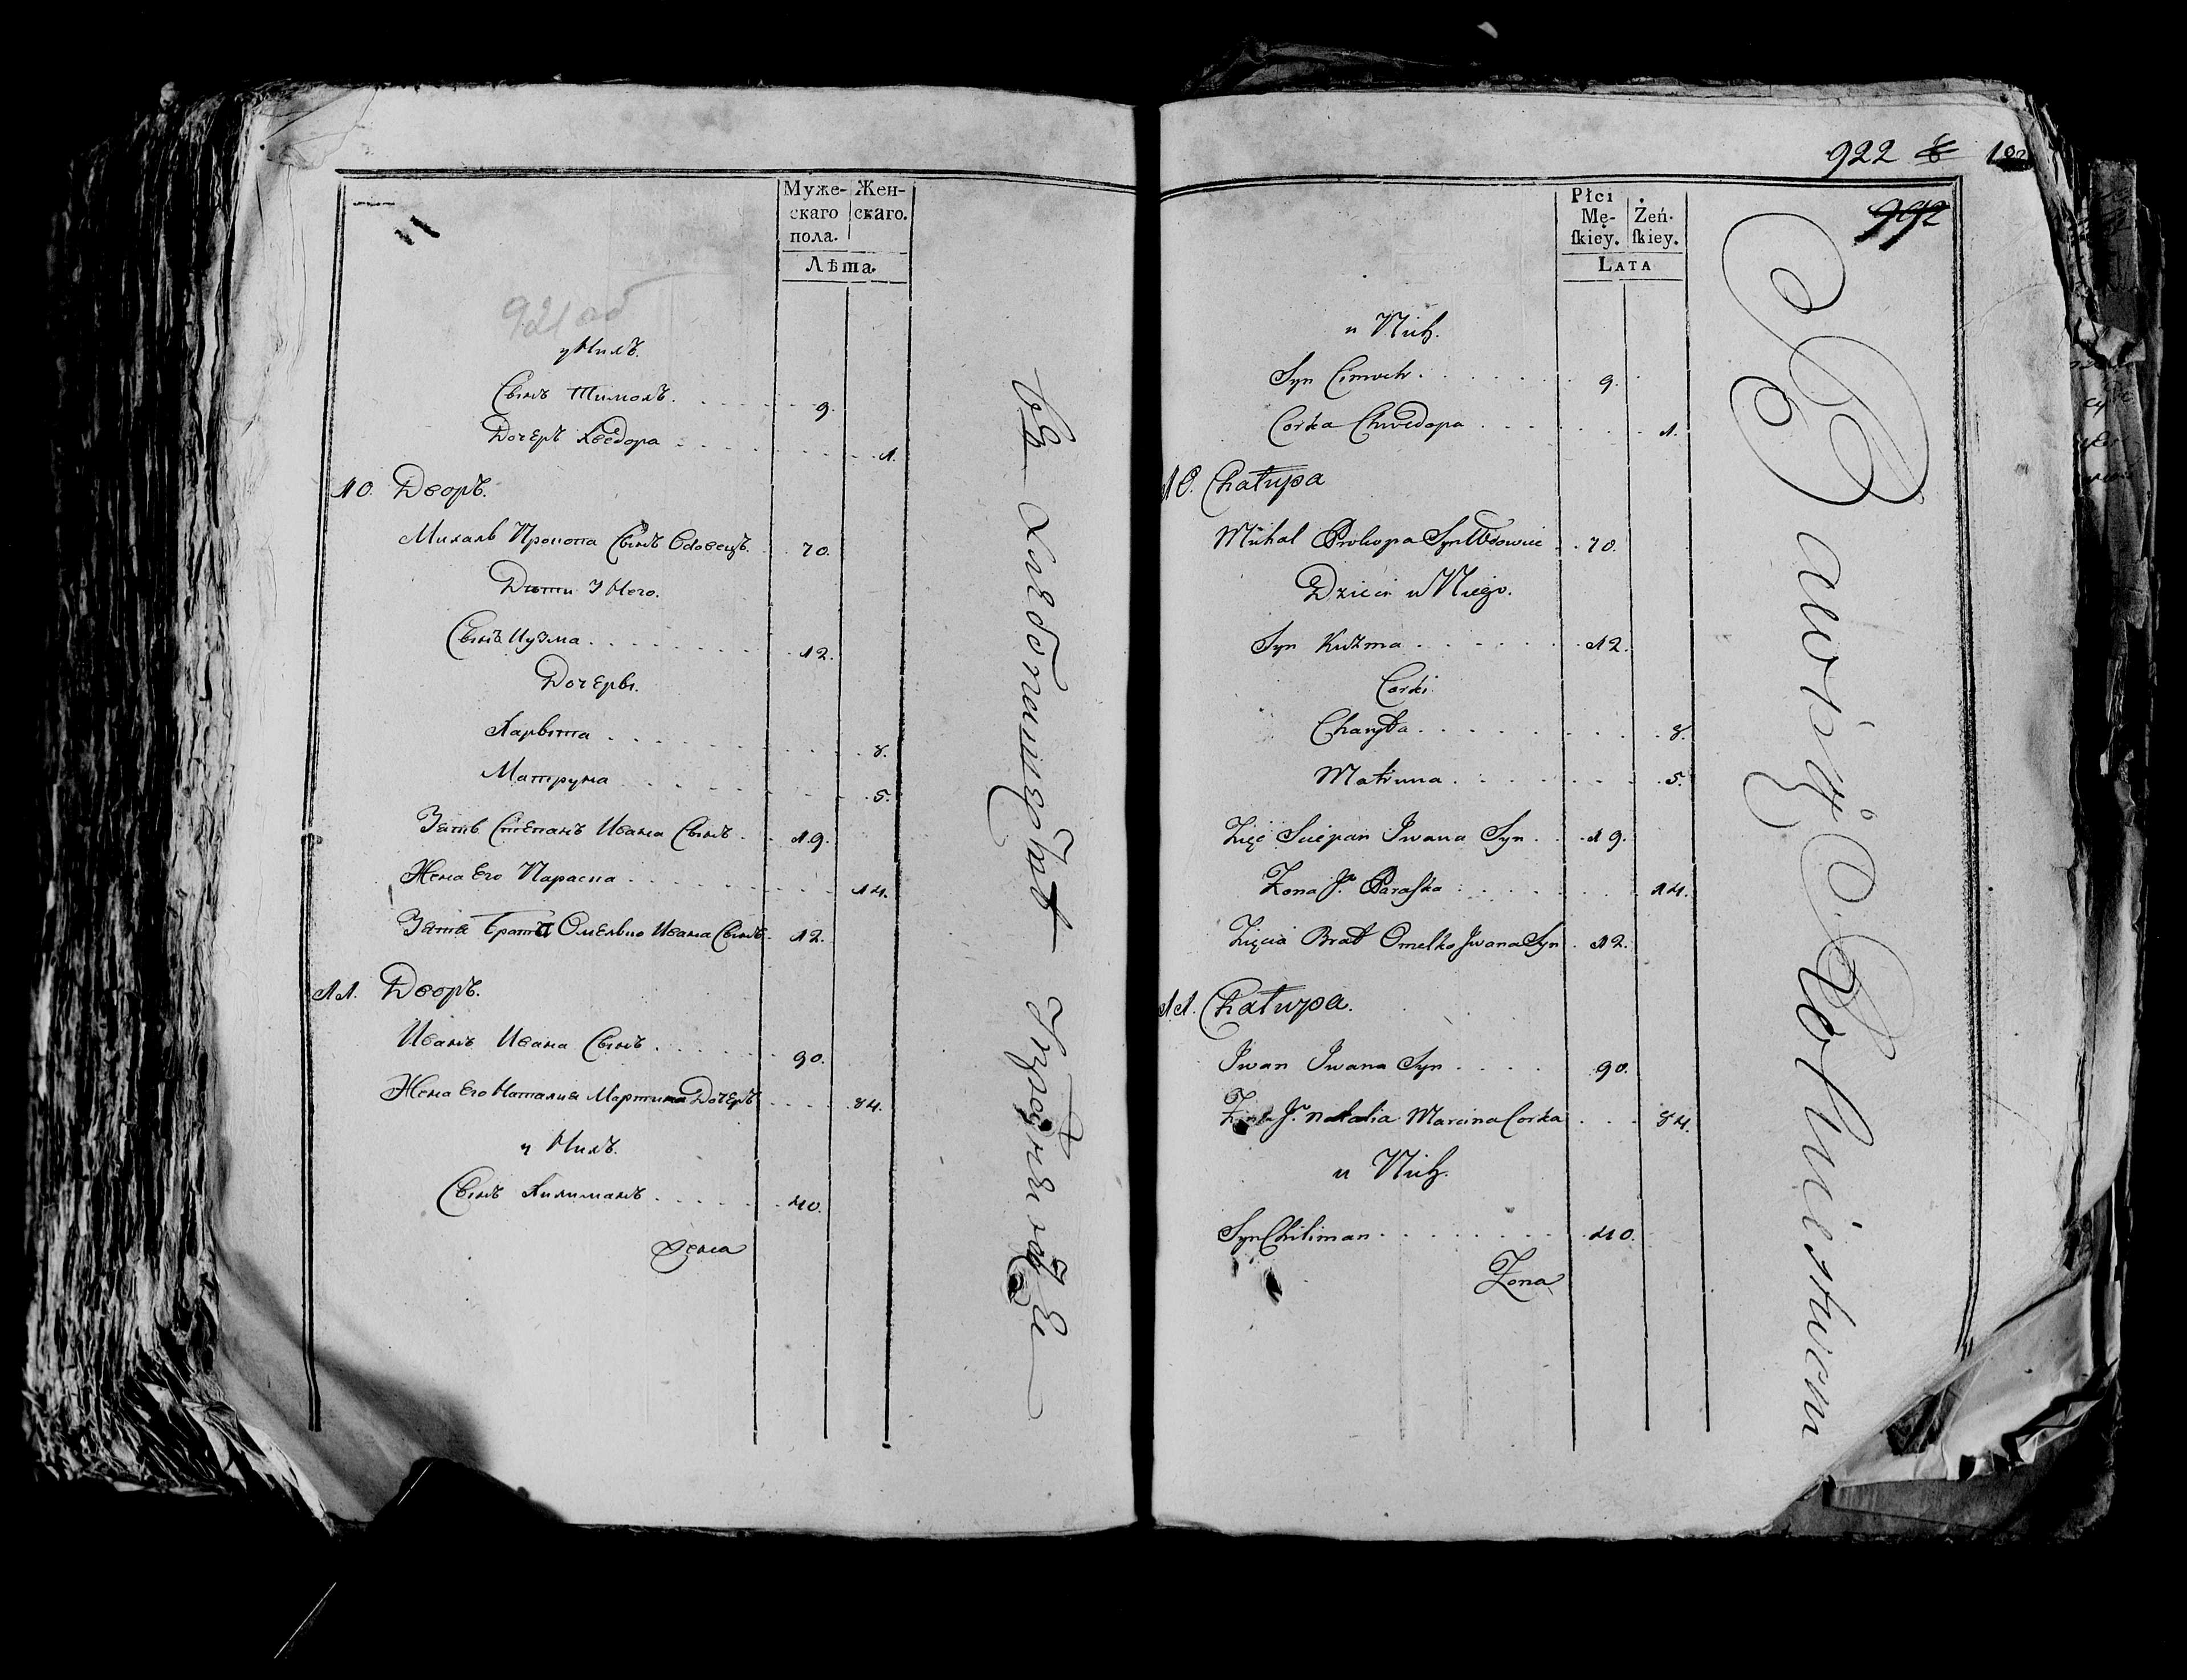 Муже- Жен-
скаго скаго.
пола.
Лѣта.
921 об
у Нихъ.
Сынъ Тимохъ. 9.
Дочеръ Хведора 1.
10. Дворъ.
Михалъ Прокопа Сынъ Вдовецъ. 70.
Дѣти У Него.
Сынъ Кузма 12.
Дочеры.
Харытта 8.
Матруна 5.
Зять Степанъ Ивана Сынъ 19.
Жена Его Параска 14.
Зятя братъ Омелько Ивана Сынъ. 12.
11. Дворъ.
Иванъ Ивана Сынъ 90.
Жена Его Наталия Мартина Дочеръ 84.
у Нихъ.
Сынъ Хилиманъ 40.
Жена
922
102
992
Płci
Mę- Żeń-
ſkiey. ſkiey.
Lata
u Nich.
Syn Cimoch 9.
Corka Chwedora 1.
10. Chałupa
Michal Prokopa Syn Wdowiec 70.
Dzieci u Niego.
Syn Kuzma 12.
Corki
Charyta 8.
Matruna 5.
Zięć Sciepan Iwana Syn 19.
Zona Jo Paraska 14.
Zięcia Brat Omelko Iwana Syn 12.
11. Chałupa.
Iwan Iwana Syn 90.
Zona Jo Natalia Marcina Corka 84.
u Nich.
Syn Chiliman 40.
Zona